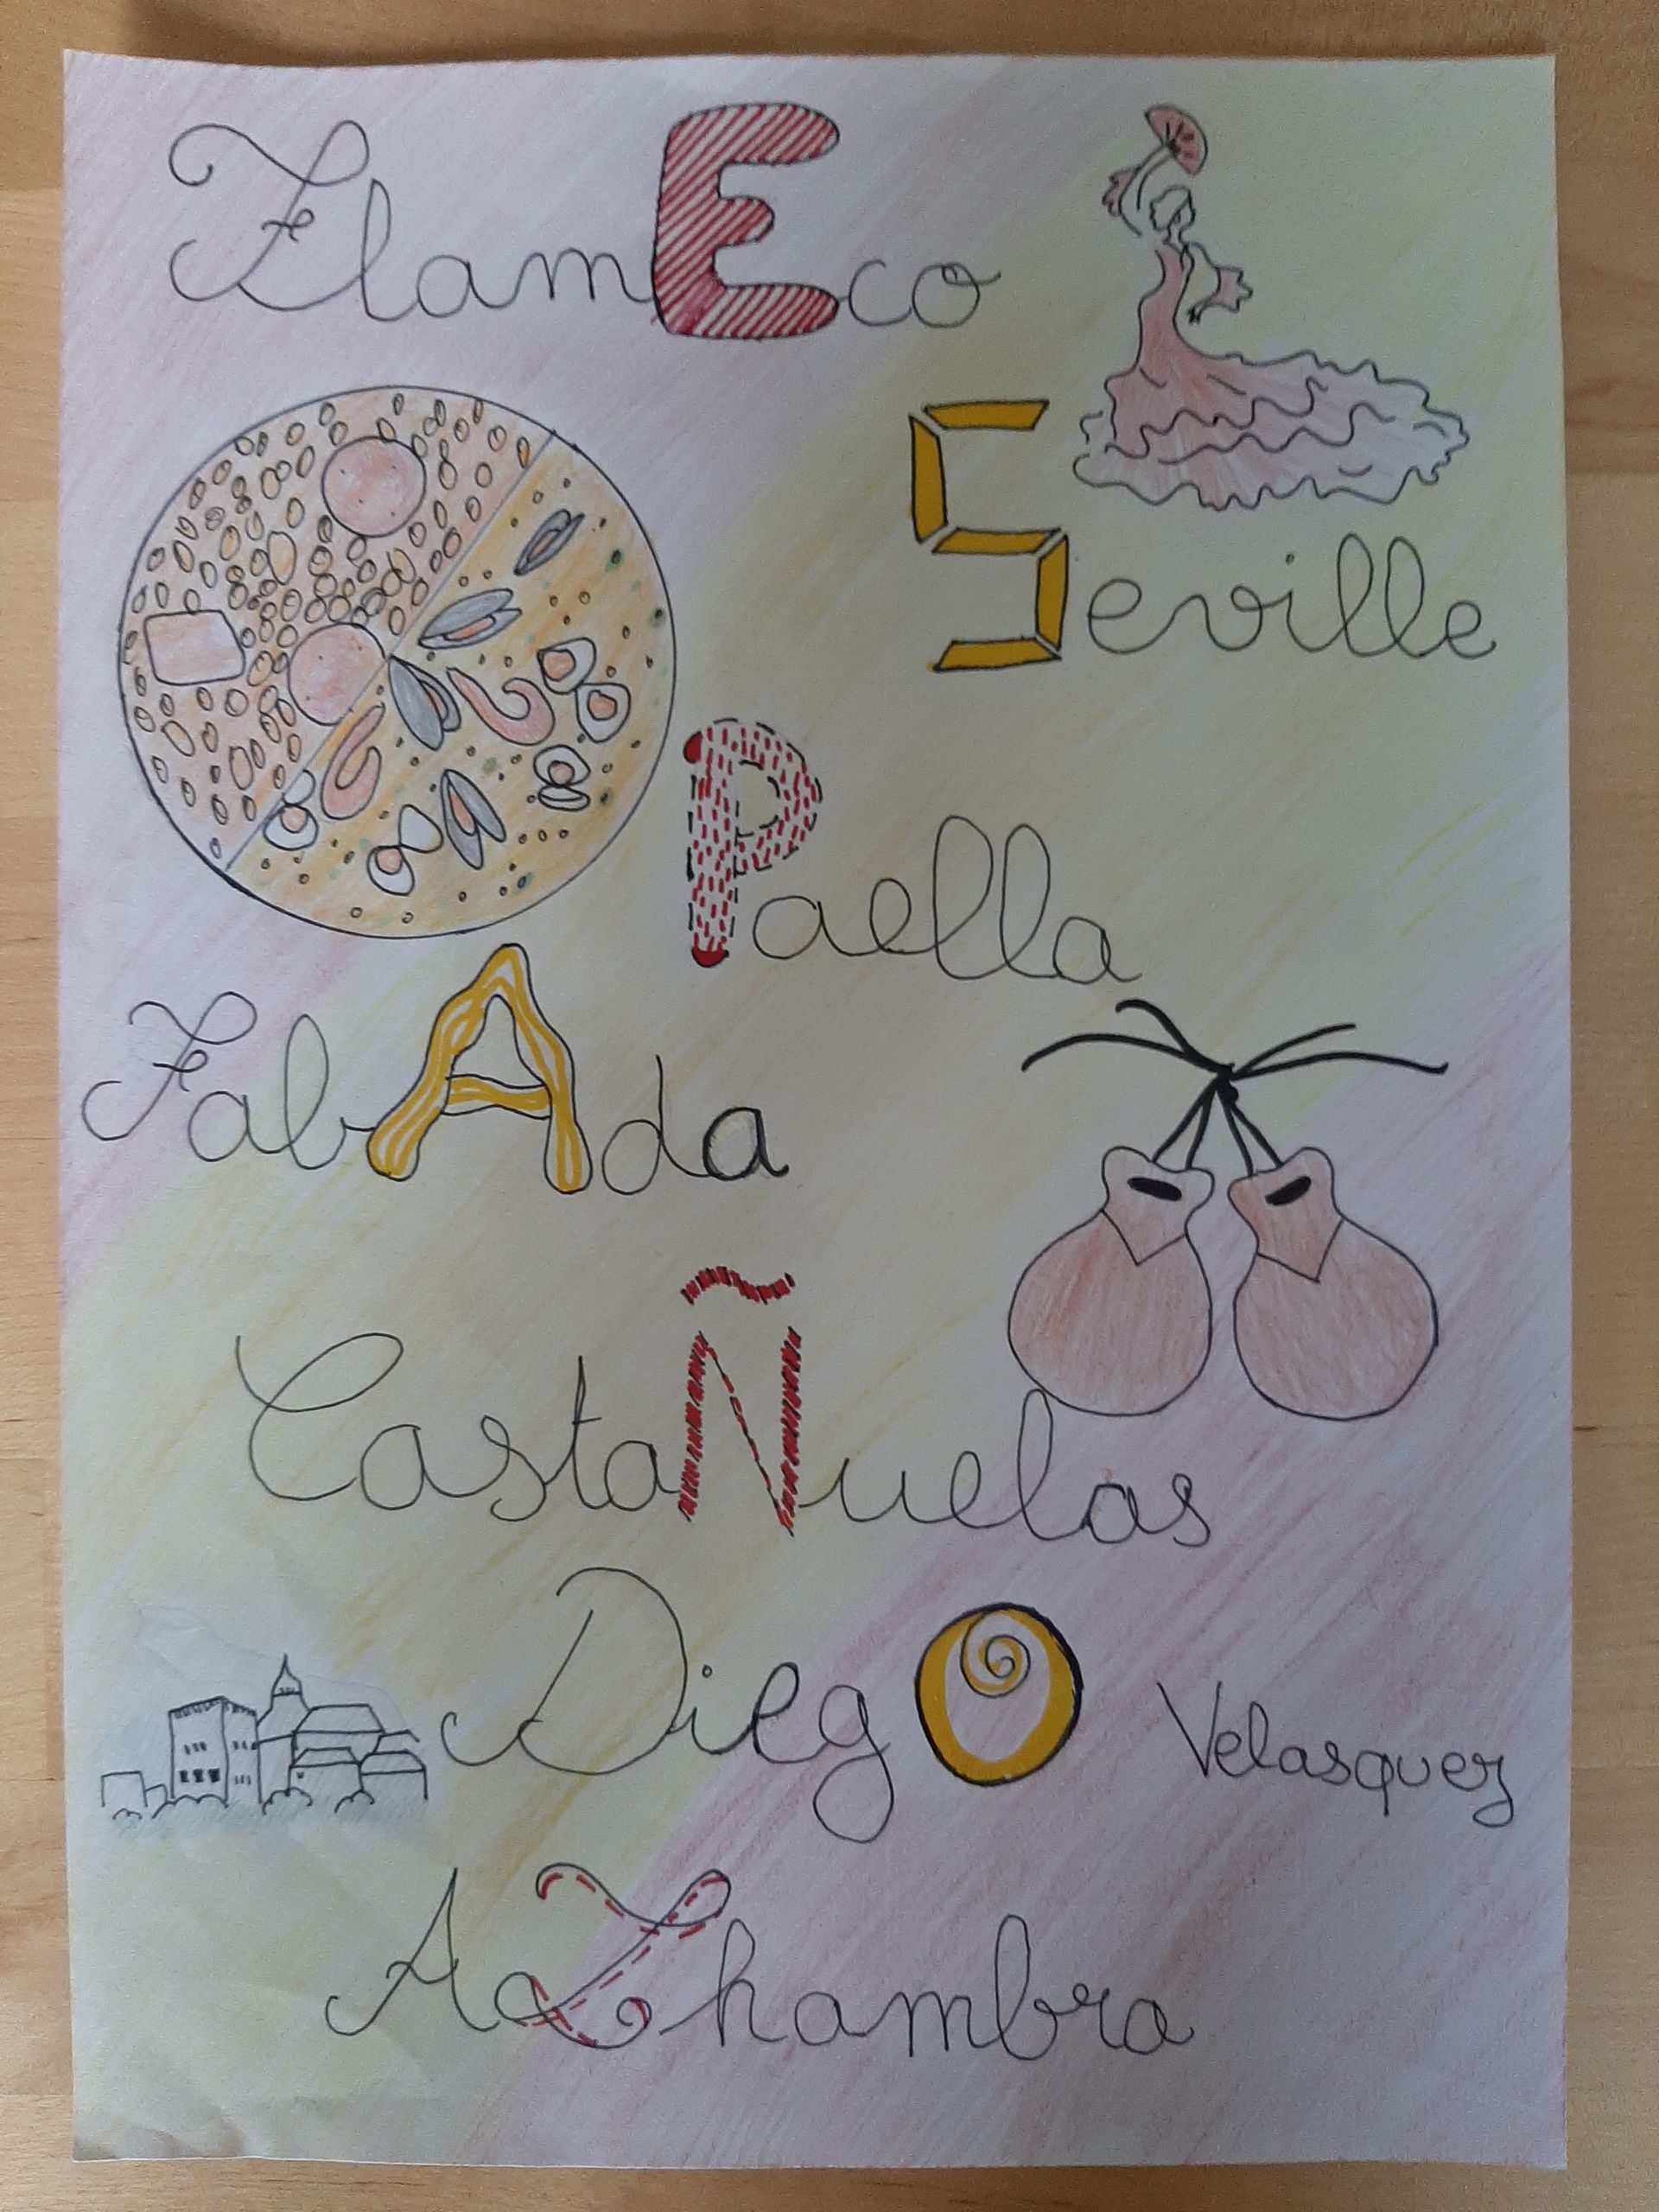 FlamEco
Seville
Paella
FabAda
CastaÑuelas
DiegO Velasquez
ALhambra